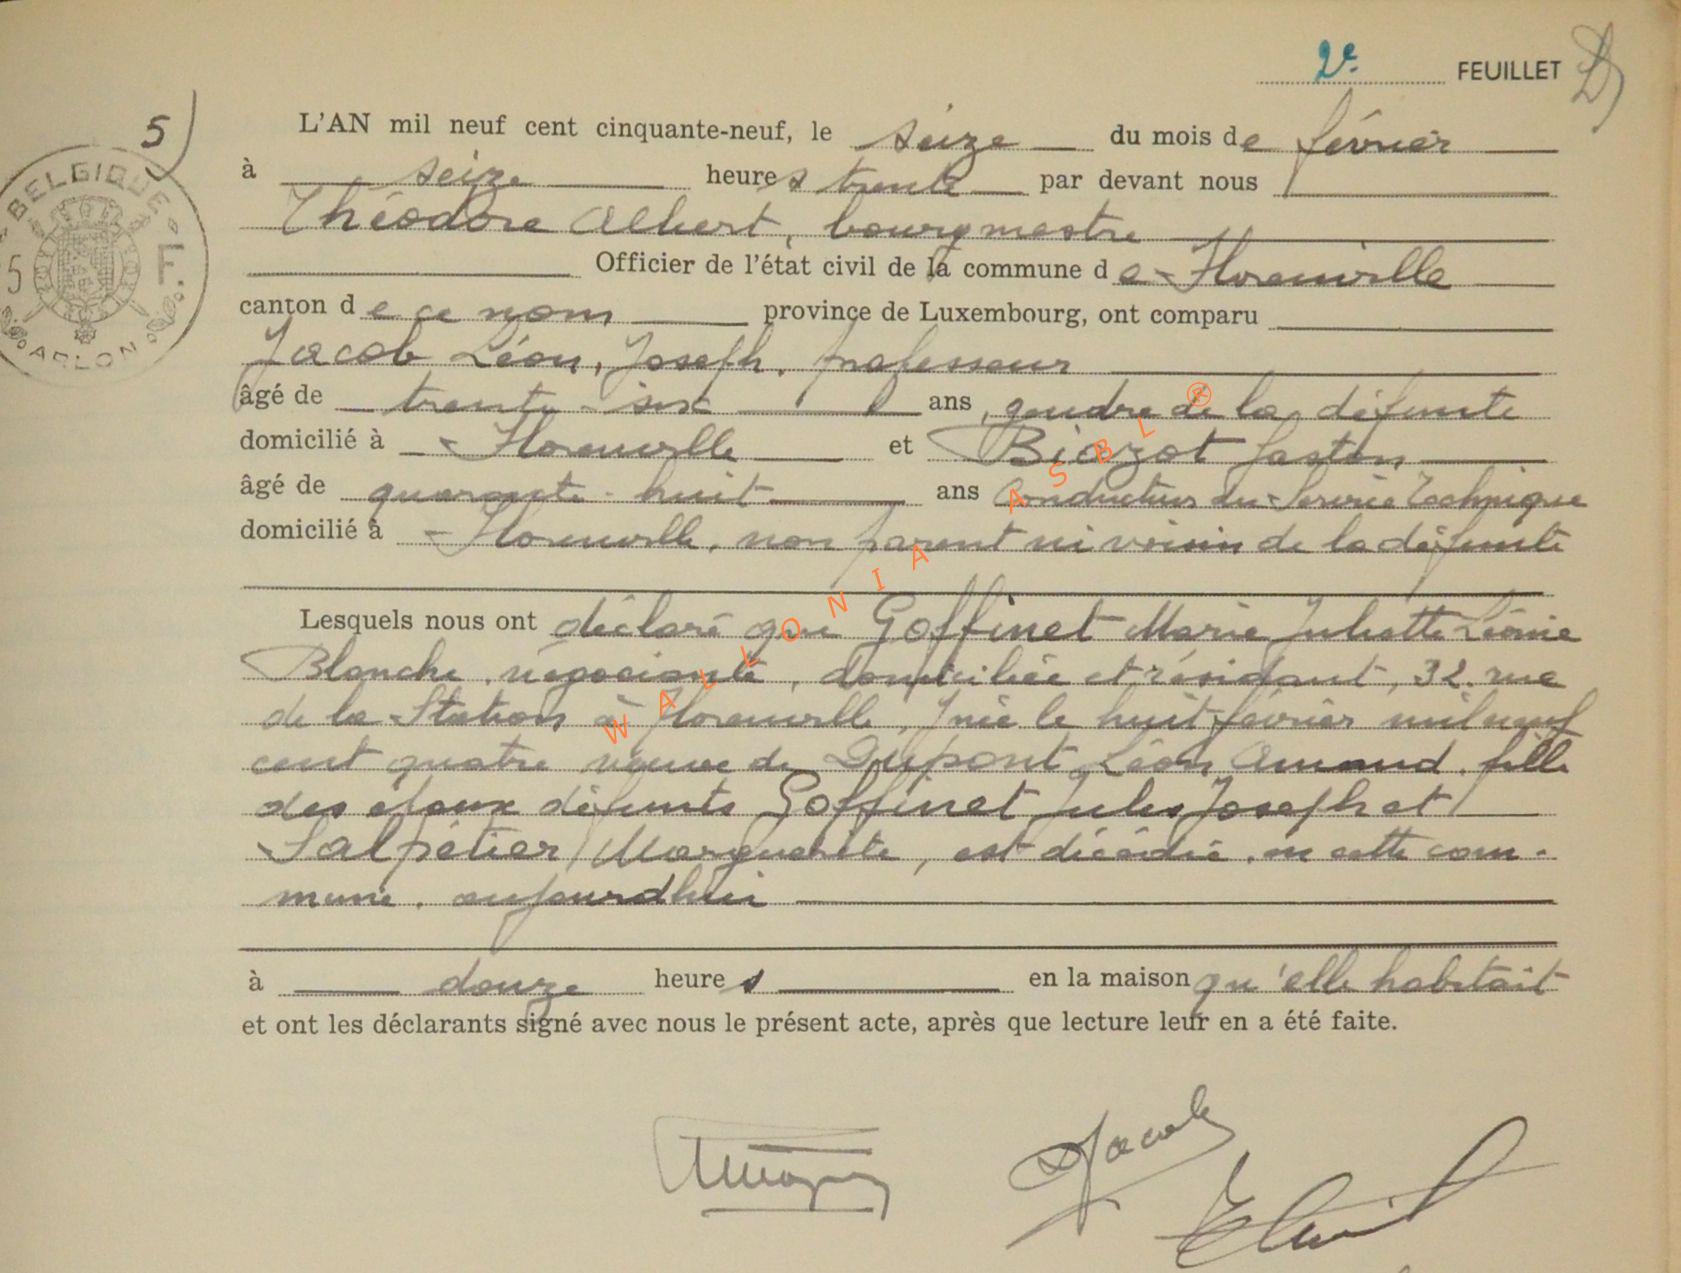 2e FEUILLET
5)
L'AN mil neuf cent cinquante-neuf, le seize du mois de février
à seize heures trente par devant nous
Théodore Albert, bourgmestre
Officier de l'état civil de la commune de Florenville
canton de ce nom province de Luxembourg, ont comparu
Jacob Léon, Joseph, professeur
âgé de trente-six ans, gendre de la défunte
domicilié à Florenville et Biazot Gaston
âgé de quarante-huit ans Conducteur du Service Technique
domicilié à Florenville, non parent ni voisin de la défunte
Lesquels nous ont déclaré que Goffinet Marie Juliette Léonie
Blanche, négociante, domiciliée et résidant, 32, rue
de la Station à Florenville, y née le huit février mil neuf
cent quatre veuve de Dupont Léon Amand, fille
des époux défunts Goffinet Jules Joseph et
Salpétier Marguerite, est décédée, en cette com-
mune, aujourd'hui
à douze heures en la maison qu'elle habitait
et ont les déclarants signé avec nous le présent acte, après que lecture leur en a été faite.
Jacob
BELGIQUE
5 F.
ARLON
WALLONIA ASBL ®